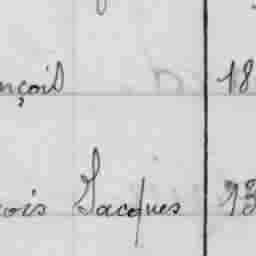 nçois 18
çois Jacques 13